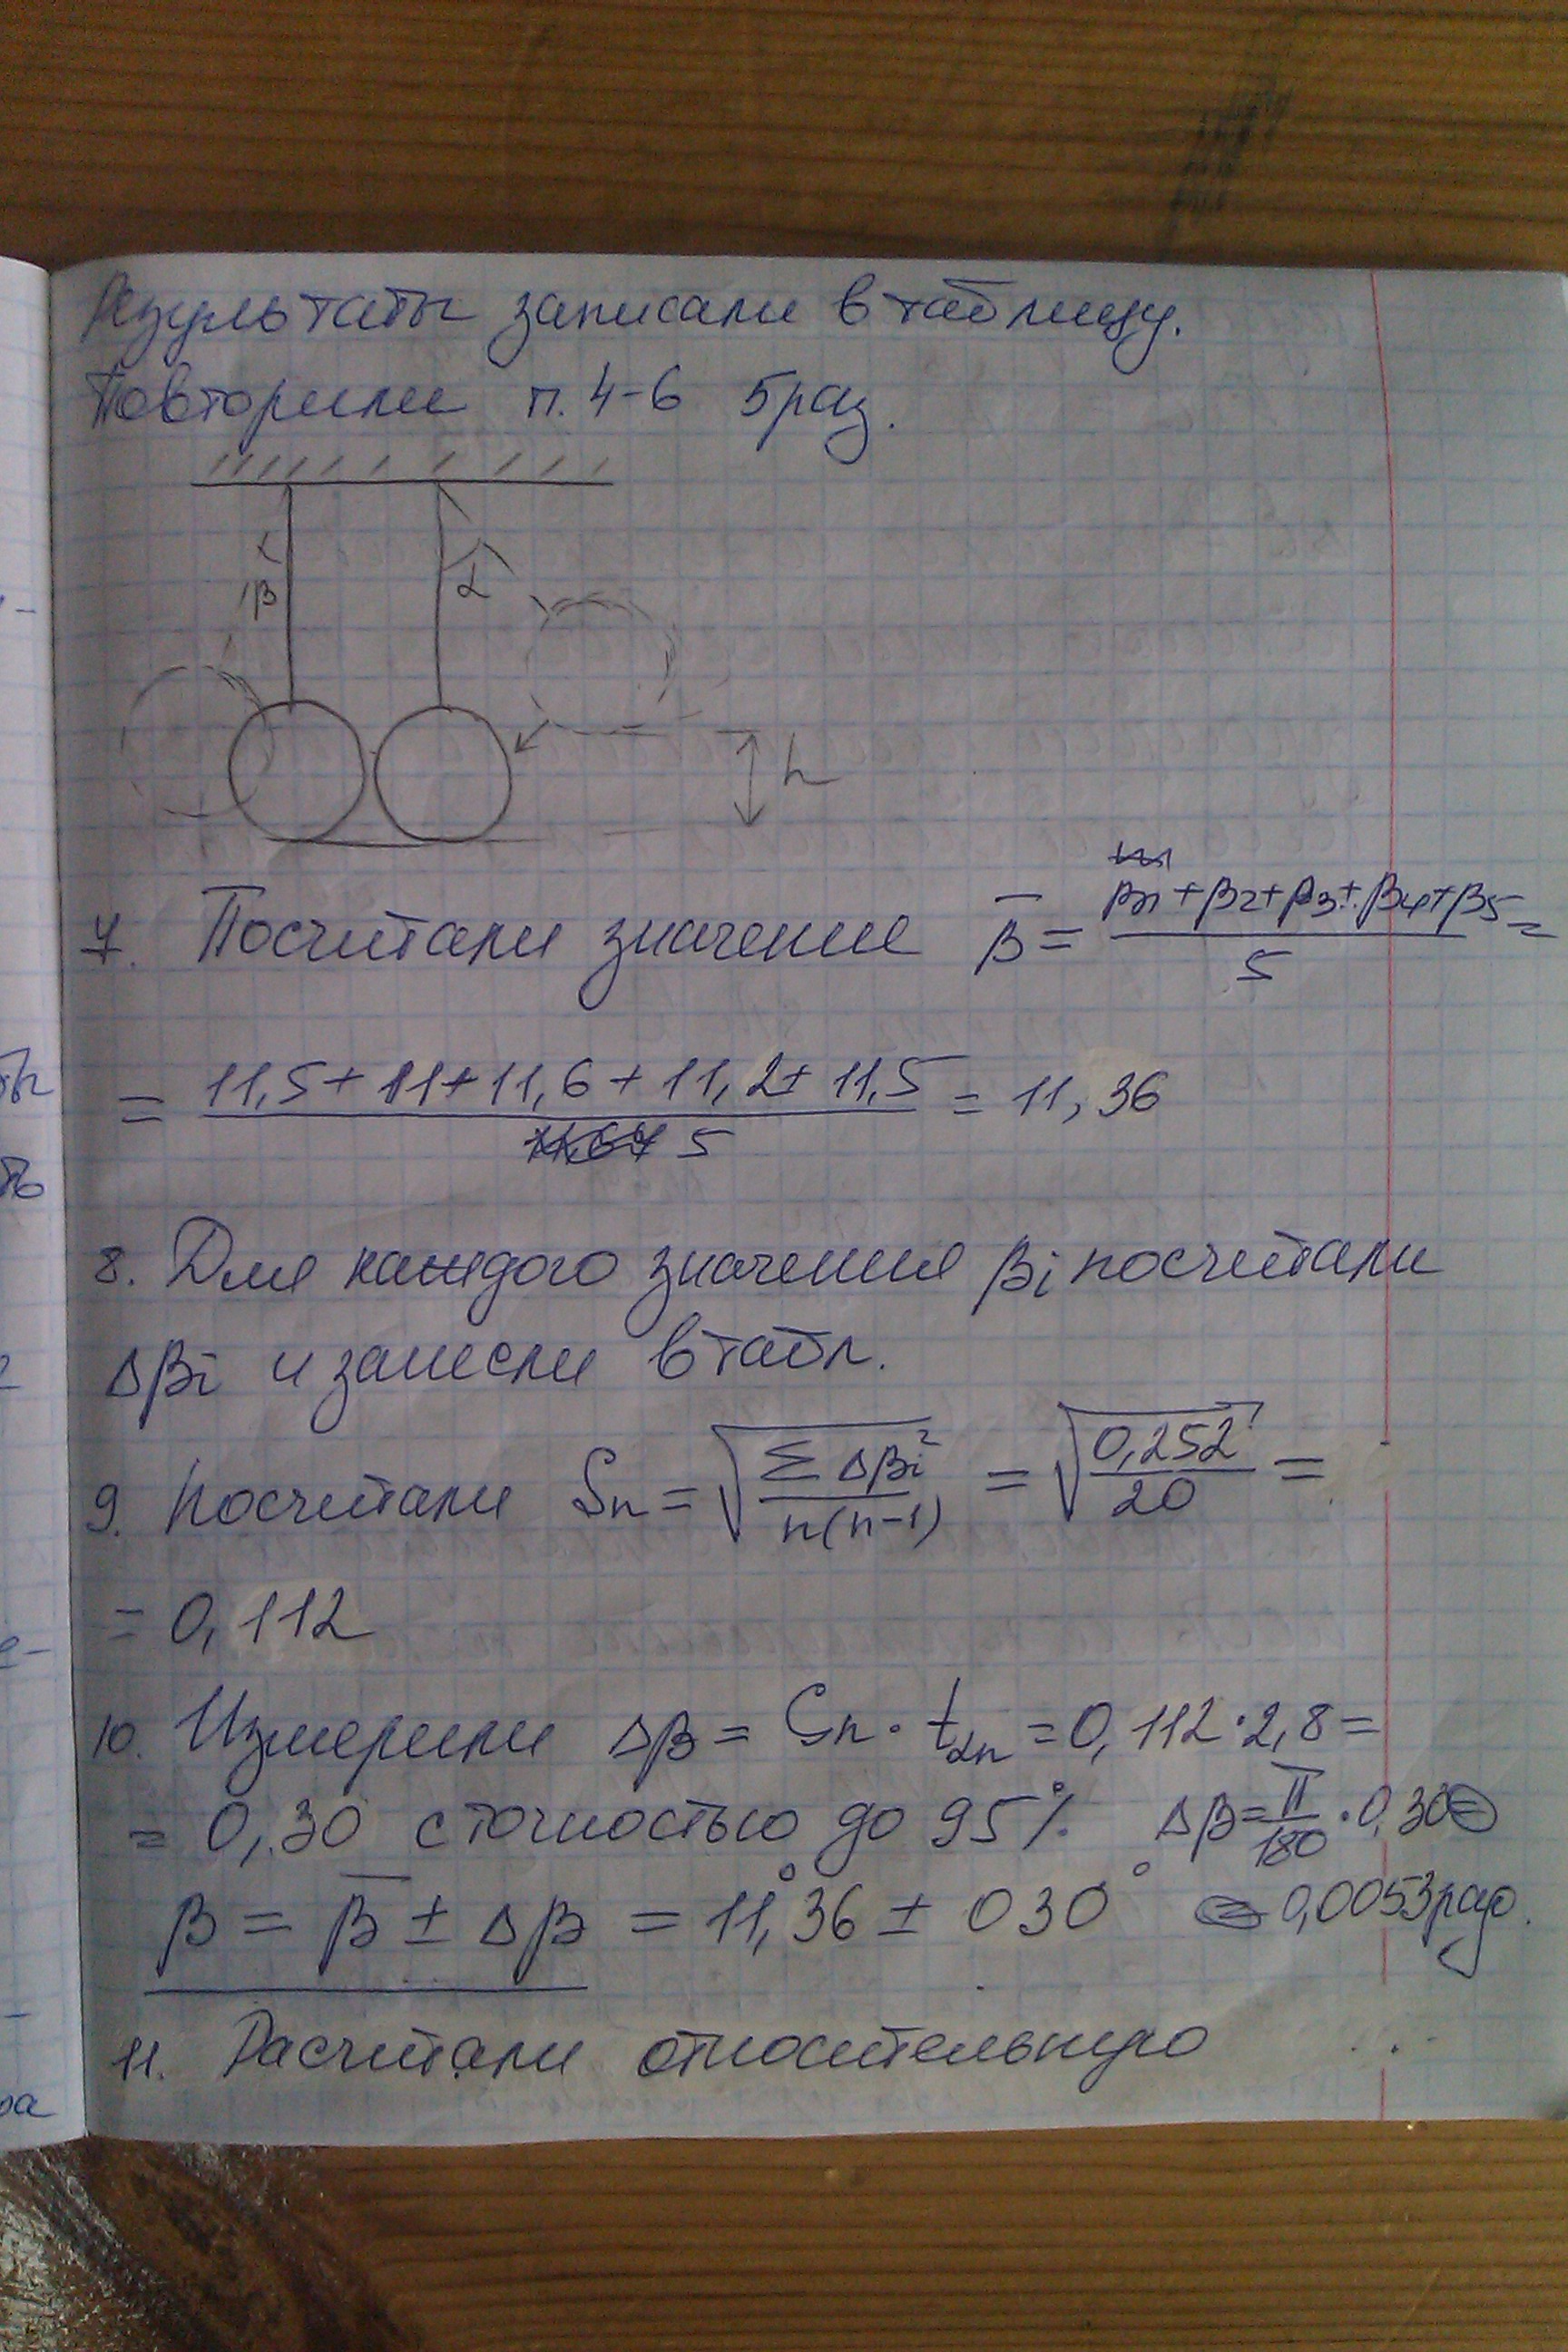 Результаты записали в таблицу.
Повторили п. 4-6 5 раз.
β α
h
7. Посчитали значение β̄ = (β1 + β2 + β3 + β4 + β5)/5 =
= (11,5 + 11 + 11,6 + 11,2 + 11,5)/5 = 11,36
8. Для каждого значения βi посчитали
Δβi и занесли в табл.
9. Посчитали Sn = √(Σ Δβi²/n(n-1)) = √(0,252/20) =
= 0,112
10. Измерили Δβ = Sn · tαn = 0,112 · 2,8 =
= 0,30 с точностью до 95% Δβ = π/180 · 0,30 =
β = β̄ ± Δβ = 11°,36 ± 030° = 0,0053 рад.
11. Расчитали относительную